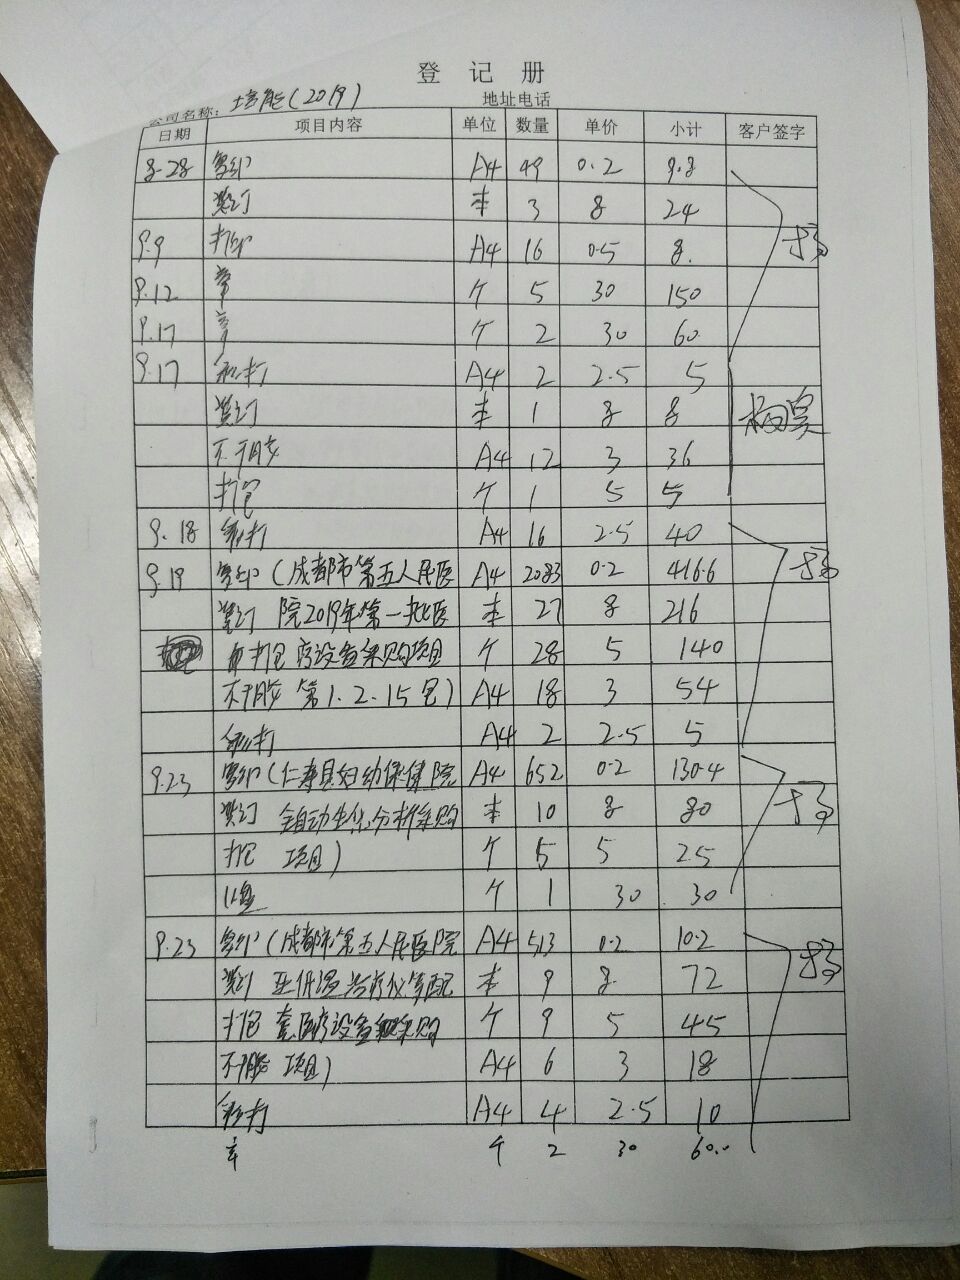 登 记 册
公司名称： (2019) 地址电话
日期 项目内容 单位 数量 单价 小计 客户签字
8.28 复印 A4 49 0.2 9.8
装订 本 3 8 24
9.9 打印 A4 16 0.5 8.
9.12 章 个 5 30 150
9.17 章 个 2 30 60
9.17 彩打 A4 2 2.5 5
装订 本 1 8 8
不干胶 A4 12 3 36
打包 个 1 5 5
9.18 彩打 A4 16 2.5 40
9.19 复印(成都市第五人民医 A4 2083 0.2 416.6
装订 院2019年第一批医 本 27 8 216
打包 疗设备采购项目 个 28 5 140
不干胶 第1.2.15包) A4 18 3 54
彩打 A4 2 2.5 5
9.23 复印(仁寿县妇幼保健院 A4 652 0.2 130.4
装订 全自动生化分析采购 本 10 8 80
打包 项目) 个 5 5 25
U盘 个 1 30 30
9.23 复印(成都市第五人民医院 A4 513 0.2 10.2
装订 亚低温治疗仪等配 本 9 8 72
打包 套医疗设备采购 个 9 5 45
不干胶 项目) A4 6 3 18
彩打 A4 4 2.5 10
章 个 2 30 60